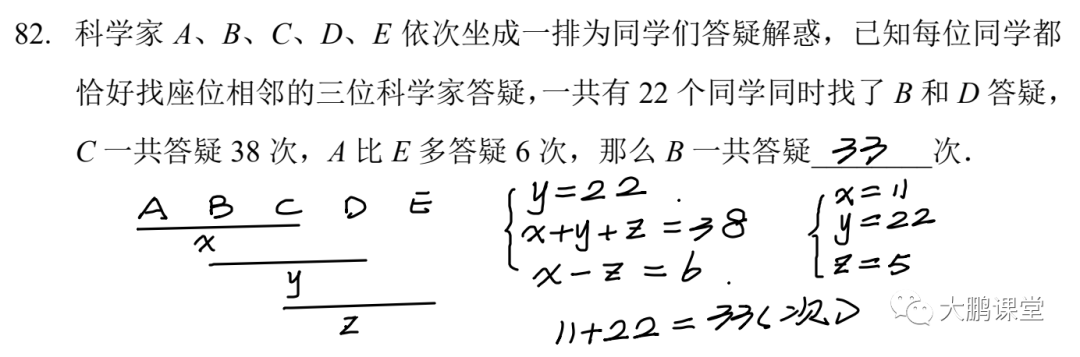 82. 科学家 A、B、C、D、E 依次坐成一排为同学们答疑解惑，已知每位同学都
恰好找座位相邻的三位科学家答疑，一共有 22 个同学同时找了 B 和 D 答疑，
C 一共答疑 38 次，A 比 E 多答疑 6 次，那么 B 一共答疑 33 次．
A B C D E
x
y
z
y=22
x+y+z=38
x-z=6
x=11
y=22
z=5
11+22=33(次)
大鹏课堂